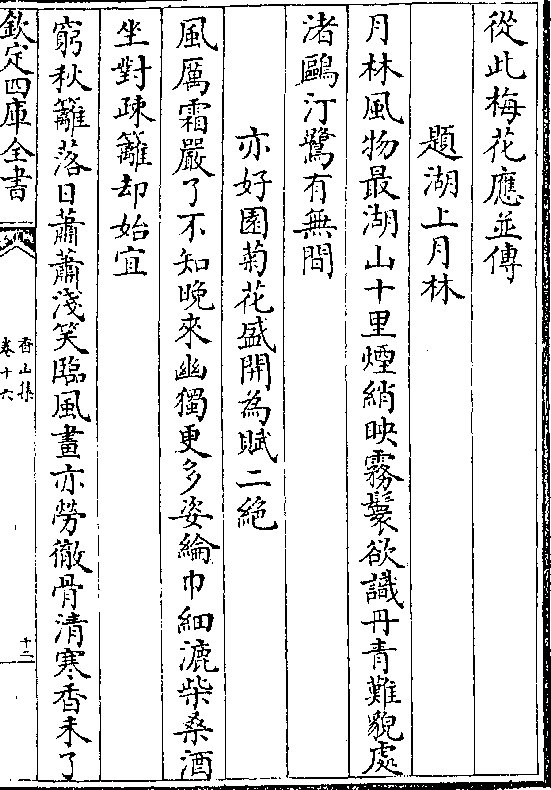 從此梅花應並傳
題湖上月林
月林風物最湖山十里煙綃映霧鬟欲識丹青難貌處
渚鷗汀鷺有無間
亦好園菊花盛開為賦二絶
風厲霜嚴了不知晚來幽獨更多姿綸巾細漉柴桑酒
坐對疎籬却始宜
窮秋籬落日蕭蕭淺笑臨風畫亦勞徹骨清寒香未了
欽定四庫全書
香山集
卷十六
十二